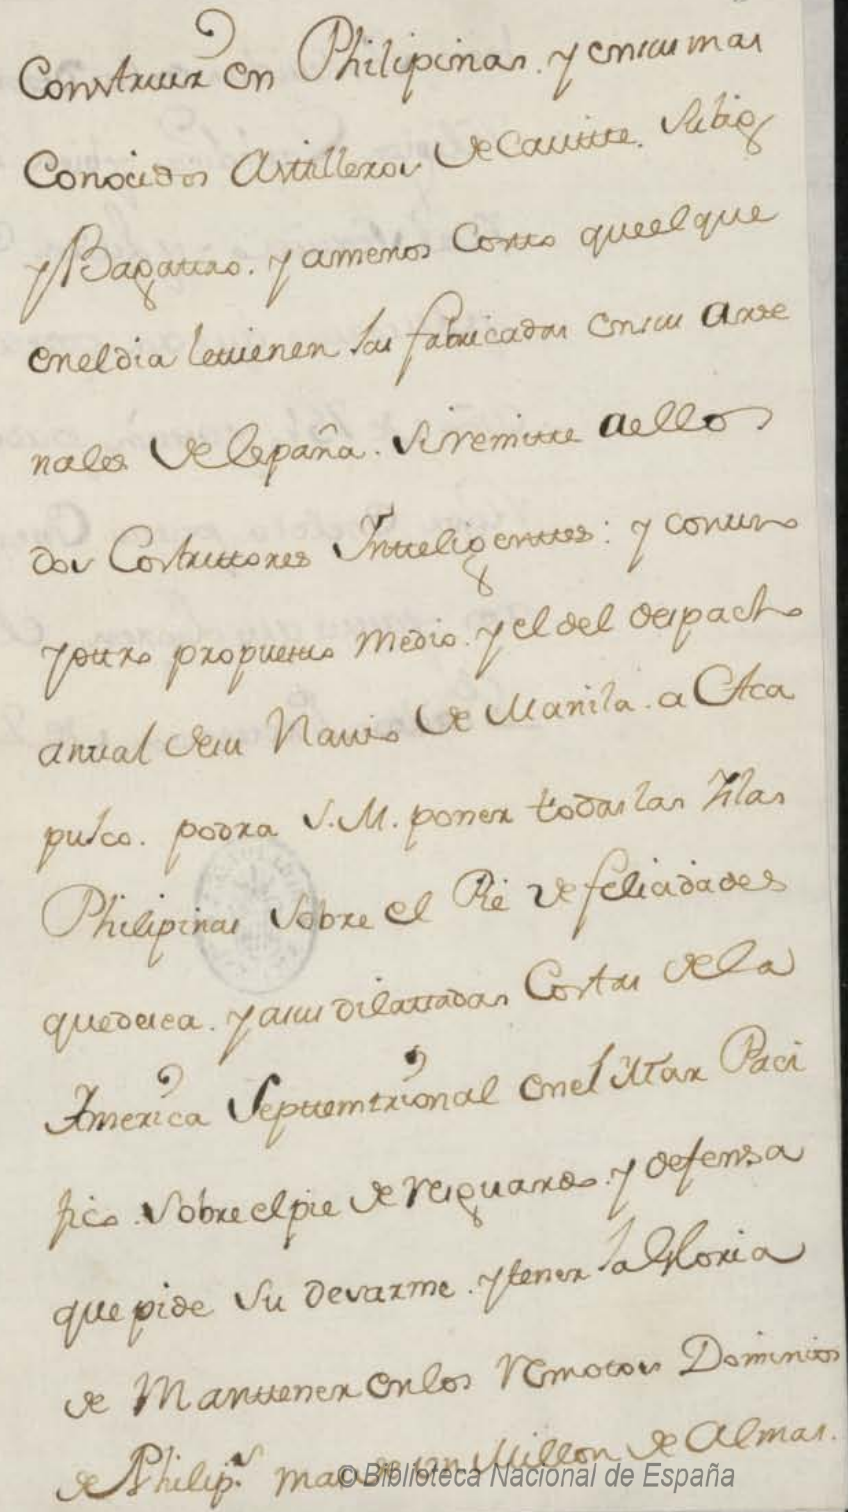 Construir en Philipinas. y en sus mas
Conocidos Astilleros de Cauitte. Subig
y Bagattao. y amenos Costo que el que
en el dia le uienen las fabricadas en sus Arse
nales de España. Si remitte a ellos
dos Costructtores Inttelig.enttes: y con un
y otro propuesto medio. y el del despacho
anual de su Nauio de Manila. a Aca
pulco. podra S. M. poner todas las Yslas
Philipinas Sobre el Pié de felicidades
que desea. y a sus dilattadas Costas de la
América Septtemtrional en el Mar Paci
fico. Sobre el pie de resguardo. y defensa
que pide su desarme. y tener la Gloria
de Manttener en los remotos Dominios
de Philip.s mas de un Millon de Almas.
© Biblioteca Nacional de España